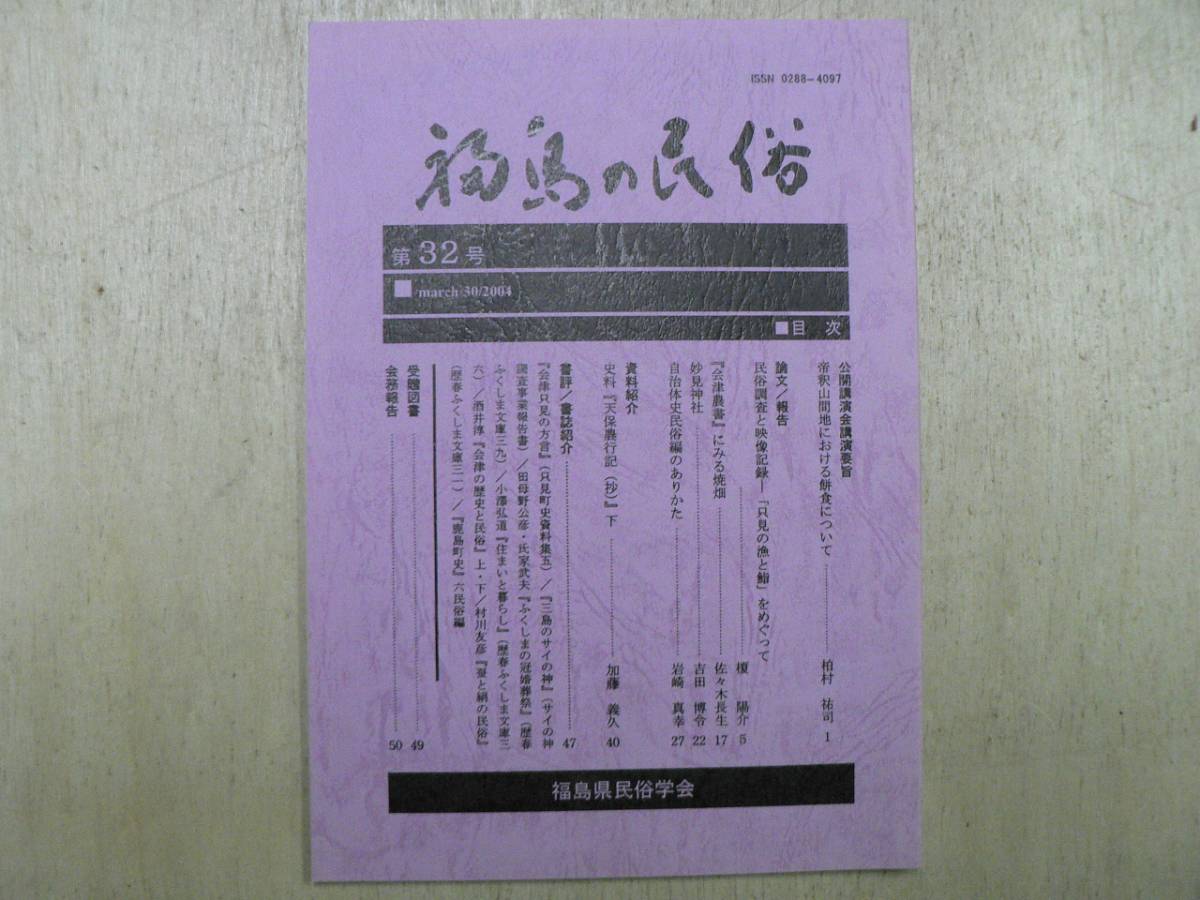 ISSN 0288-4097
福島の民俗
第32号
■/march/30/2004
■目 次
公開講演会講演要旨
帝釈山間地における餅食について 柏村 祐司 1
論文/報告
民俗調査と映像記録―「只見の漁と鮨」をめぐって
榎 陽介 5
『会津農書』にみる焼畑 佐々木長生 17
妙見神社 吉田 博令 22
自治体史民俗編のありかた 岩崎 真幸 27
資料紹介
史料『天保農行記(抄)』下 加藤 義久 40
書評/書誌紹介 47
『会津只見の方言』(只見町史資料集五)/『三島のサイの神』(サイの神
調査事業報告書)/田母野公彦・氏家武夫『ふくしまの冠婚葬祭』(歴春
ふくしま文庫三九)/小澤弘道『住まいと暮らし』(歴春ふくしま文庫三
六)/酒井淳『会津の歴史と民俗』上・下/村川友彦『蚕と絹の民俗』
(歴春ふくしま文庫三一)/『鹿島町史』六民俗編
受贈図書 49
会務報告 50
福島県民俗学会